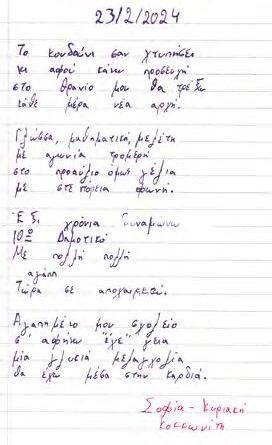 23/2/2024
Το κουδούνι σαν χτυπήσει
κι αφού κάνω προσευχή
στο θρανίο μου θα τρέξω
κάθε μέρα νέα αρχή.
Γλώσσα, μαθηματικά, μελέτη
με αγωνία τρομερή
στο προαύλιο όμως γέλια
με φωνή.
Έξι χρόνια δυναμώνω
10ο Δημοτικό
Με πολλή πολλή
αγάπη
Τώρα σε αποχωρετώ.
Αγαπημένο μου σχολείο
σ' αφήνω "έχε" γεια
μία γλυκιά μελαγχολία
θα έχω μέσα στην καρδιά.
Σοφία - Κυριακή